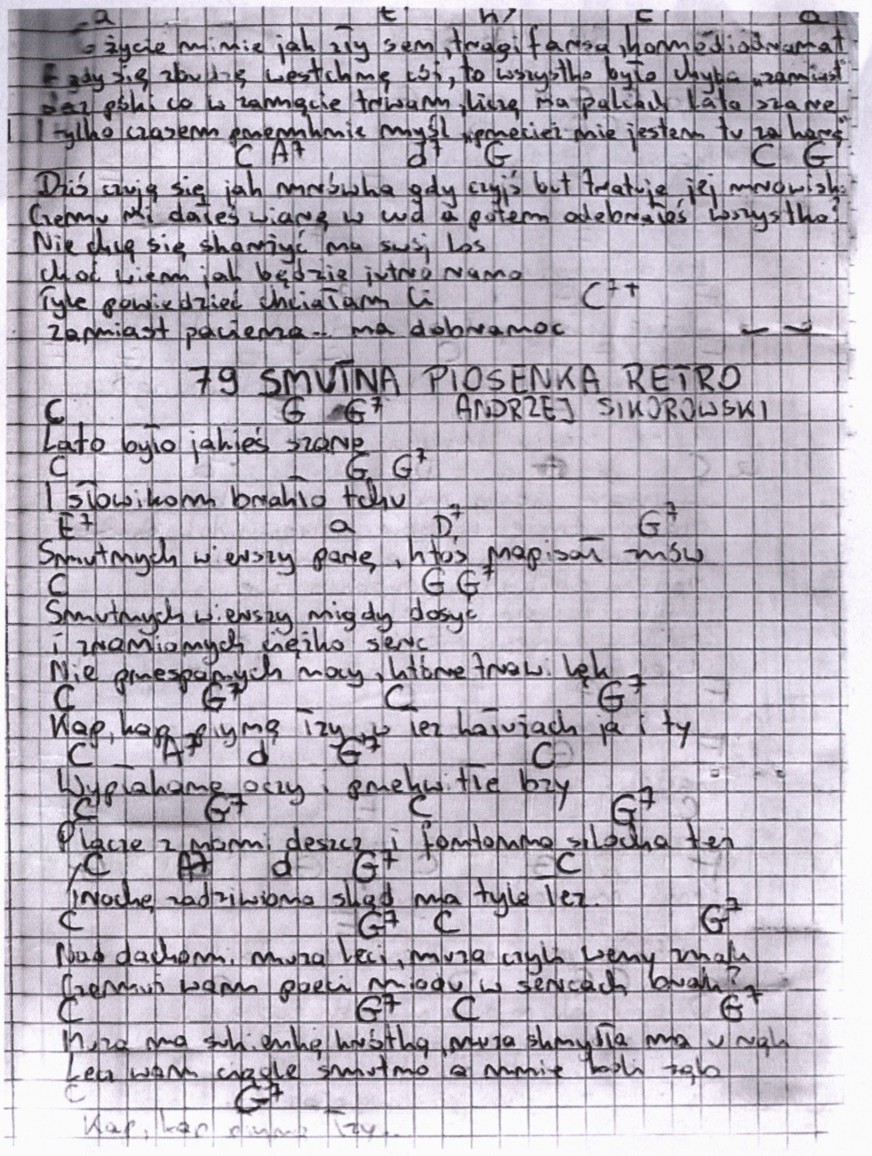 a t h7 C a
życie minie jak zły sen, tragifarsa, komediodramat
gdy się zbudzę westchnę cóż, to wszystko było chyba „zamiast"
póki co w zamęcie trwam, liczę na palcach lata szare
I tylko czasem przemknie myśl „przecież nie jestem tu za karę"
C A7 d7 G C G
Dziś czuję się jak mrówka gdy czyjś but tratuje jej mrowisk
Czemu mi dałeś wiarę w cud a potem odebrałeś wszystko?
Nie chcę się skarżyć na swój los
choć wiem jak będzie jutro rano
Tyle powiedzieć chciałam Ci C7+
zamiast pacierza.. na dobranoc
79 SMUTNA PIOSENKA RETRO
C G G7 ANDRZEJ SIKOROWSKI
Lato było jakieś szare
C G G7
I słowikom brakło tchu
E7 a D7 G7
Smutnych wierszy parę, ktoś napisał znów
C G G7
Smutnych wierszy nigdy dosyć
i zranionych ciężko serc
Nie przespanych nocy, które trawi lęk
C G7 C G7
Kap, kap płyną łzy, w łez kałużach ja i ty
C A7 d G7 C
Wypłakane oczy i przekwitłe bzy
C G7 C G7
Płacze z nami deszcz i fontanna szlocha też
C A7 d G7 C
Trochę zadziwiona skąd ma tyle łez.
C G7 C G7
Nad dachami muza leci, muza czyli weny znak
Czemuż wam poeci miodu w sercach brak?
C G7 C G7
Muza ma sukienkę krótką, muza skrzydła ma u rąk
Lecz wam ciągle smutno a mnie boli ząb
C G7
Kap, kap płyną łzy..